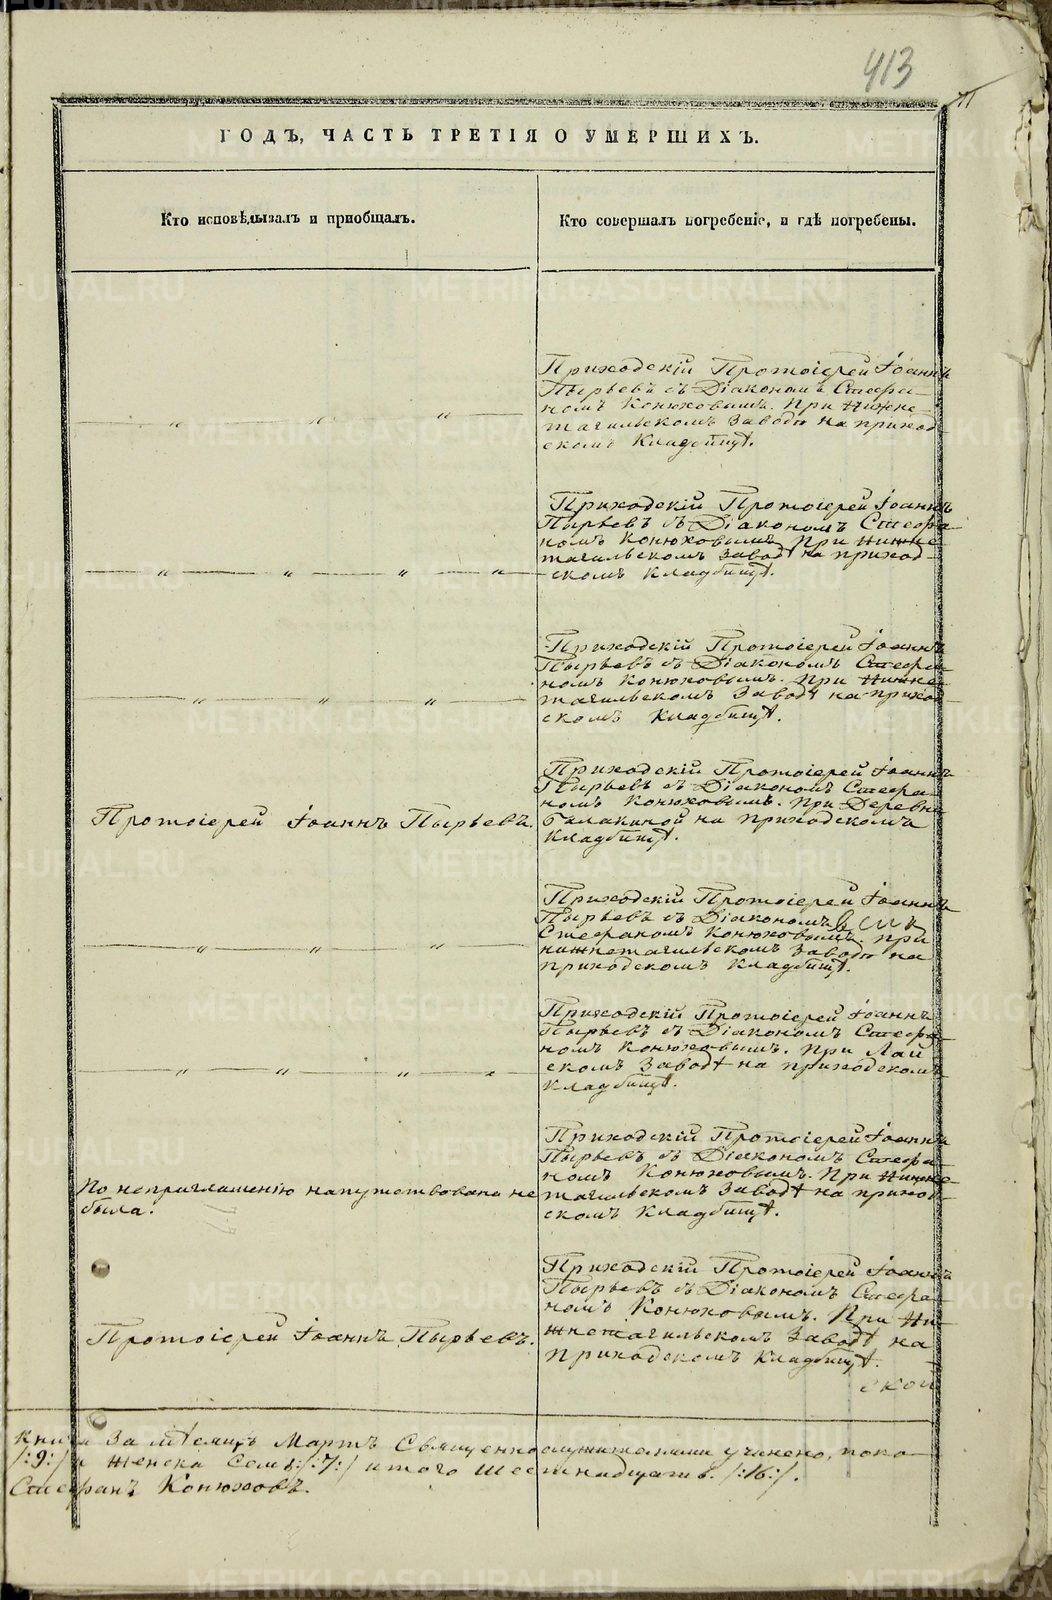 413
ГОДЪ, ЧАСТЬ ТРЕТІЯ О УМЕРШИХЪ.
Кто исповѣдывалъ и приобщалъ.
Кто совершалъ погребеніе, и гдѣ погребены.
Приходскій Протоіерей Іоаннъ
Пырьевъ съ Діакономъ Стефа-
номъ Конюховымъ. При Нижне-
тагильскомъ Заводѣ на приход-
скомъ Кладбищѣ.
Приходскій Протоіерей Іоаннъ
Пырьевъ съ Діакономъ Стефа-
номъ Конюховымъ При Нижне-
тагильскомъ Заводѣ на приход-
скомъ Кладбищѣ.
Приходскій Протоіерей Іоаннъ
Пырьевъ съ Діакономъ Стефа-
номъ Конюховымъ. При Нижне-
тагильскомъ Заводѣ на приход-
скомъ Кладбищѣ.
Протоіерей Іоаннъ Пырьевъ.
Приходскій Протоіерей Іоаннъ
Пырьевъ съ Діакономъ Стефа-
номъ Конюховымъ. При Деревне
Балакиной на приходскомъ
Кладбищѣ.
Приходскій Протоіерей Іоаннъ
Пырьевъ съ Діакономъ
Стефаномъ Конюховымъ. При
нижнетагильскомъ Заводѣ на
приходскомъ Кладбищѣ.
Приходскій Протоіерей Іоаннъ
Пырьевъ съ Діакономъ Стефа-
номъ Конюховымъ. При Лай
скомъ Заводѣ на приходскомъ
Кладбищѣ.
По неприглашенію напутствована не
была.
Приходскій Протоіерей Іоаннъ
Пырьевъ съ Діакономъ Стефа-
номъ Конюховымъ. При Нижне-
тагильскомъ Заводѣ на приход-
скомъ Кладбищѣ.
Протоіерей Іоаннъ Пырьевъ.
Приходскій Протоіерей Іоаннъ
Пырьевъ съ Діакономъ Стефа-
номъ Конюховымъ. При Ни-
жнетагильскомъ Заводѣ на
Приходскомъ Кладбищѣ.
ской
За мѣсяцъ Мартъ Священнослужителями учинено, пока-
/:9:/ и женска Семь:/:7:/ итого Шестнадцать. /:16:/.
Стефанъ Конюховъ.